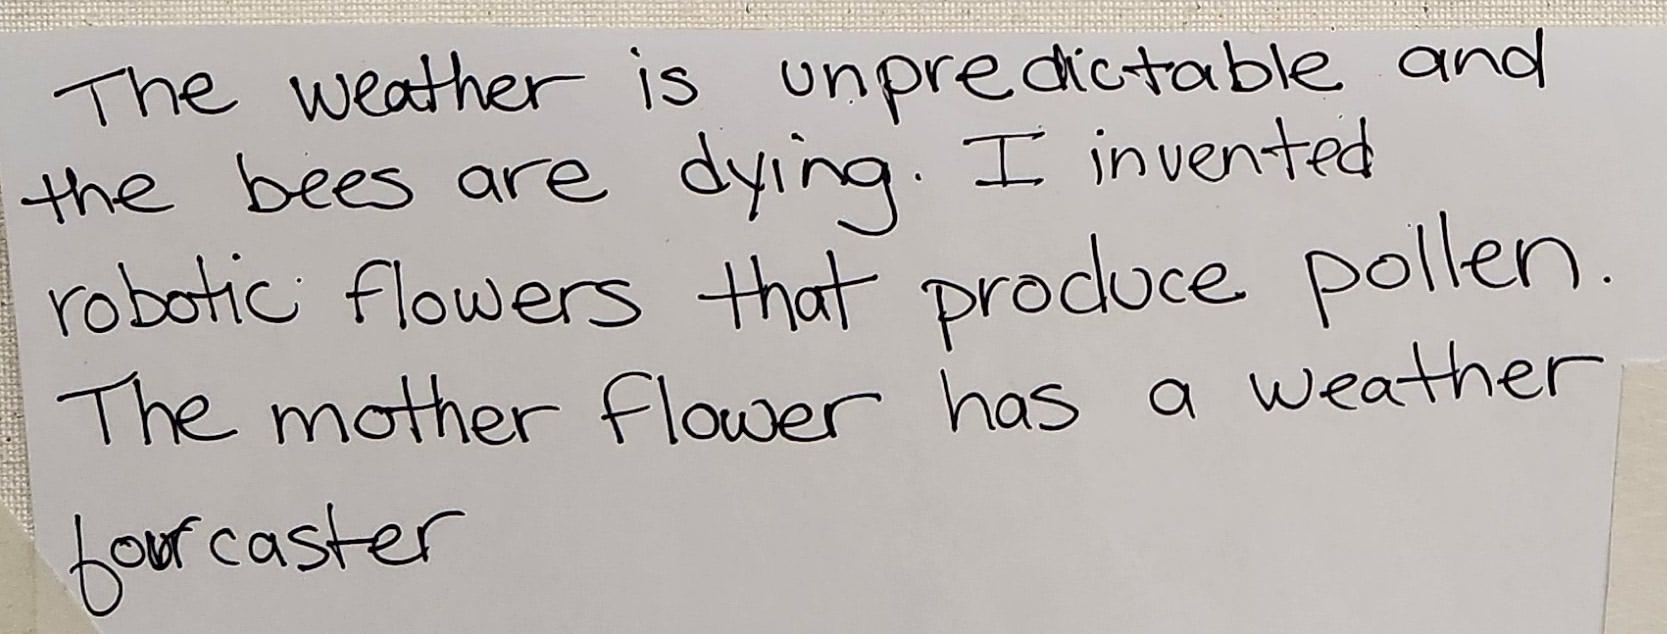 The weather is unpredictable and
the bees are dying. I invented
robotic flowers that produce pollen.
The mother flower has a weather
fourcaster